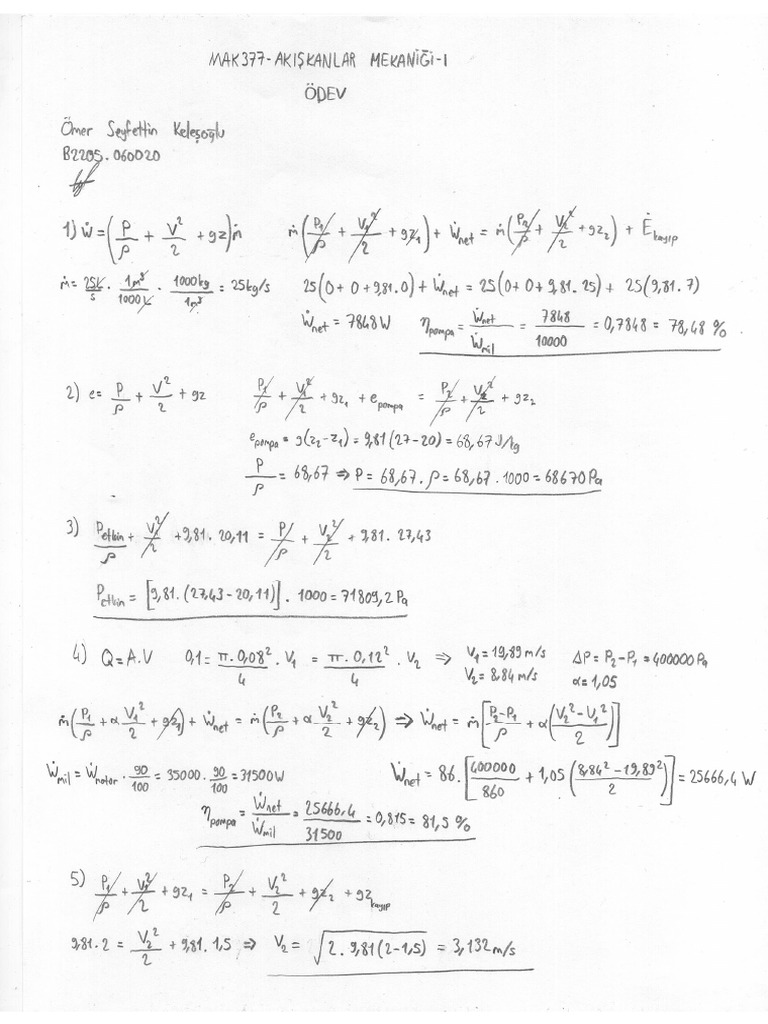 MAK377-AKIŞKANLAR MEKANİĞİ-1
ÖDEV
Ömer Seyfettin Keleşoğlu
B2205.060020
1) Ẇ=(P/ρ + V²/2 + gz)ṁ   ṁ(P₁/ρ + V₁²/2 + gz₁) + Ẇnet = ṁ(P₂/ρ + V₂²/2 + gz₂) + Ėkayıp
ṁ = 25L/s · 1m³/1000L · 1000kg/1m³ = 25kg/s   25(0+0+9,81.0) + Ẇnet = 25(0+0+9,81.25) + 25(9,81.7)
Ẇnet = 7848W   ηpompa = Ẇnet/Ẇmil = 7848/10000 = 0,7848 = 78,48 %
2) e = P/ρ + V²/2 + gz   P₁/ρ + V₁²/2 + gz₁ + epompa = P₂/ρ + V₂²/2 + gz₂
epompa = g(z₂-z₁) = 9,81(27-20) = 68,67 J/kg
P/ρ = 68,67 ⇒ P = 68,67.ρ = 68,67.1000 = 68670Pa
3) Petkin/ρ + V₁²/2 + 9,81.20,11 = P/ρ + V₂²/2 + 9,81.27,43
Petkin = [9,81.(27,43-20,11)].1000 = 71809,2Pa
4) Q=A.V   0,1 = π.0,08²/4 . V₁ = π.0,12²/4 . V₂ ⇒ V₁=19,89m/s   ΔP = P₂-P₁ = 400000Pa
V₂=8,84m/s   α=1,05
ṁ(P₁/ρ + αV₁²/2 + gz₁) + Ẇnet = ṁ(P₂/ρ + αV₂²/2 + gz₂) ⇒ Ẇnet = ṁ[P₂-P₁/ρ + α(V₂²-V₁²/2)]
Ẇmil = Ẇmotor . 90/100 = 35000 . 90/100 = 31500W   Ẇnet = 86.[400000/860 + 1,05(8,84²-19,89²/2)] = 25666,4 W
ηpompa = Ẇnet/Ẇmil = 25666,4/31500 = 0,815 = 81,5 %
5) P₁/ρ + V₁²/2 + gz₁ = P₂/ρ + V₂²/2 + gz₂ + gzkayıp
9,81.2 = V₂²/2 + 9,81.1,5 ⇒ V₂ = √2.9,81(2-1,5) = 3,132m/s